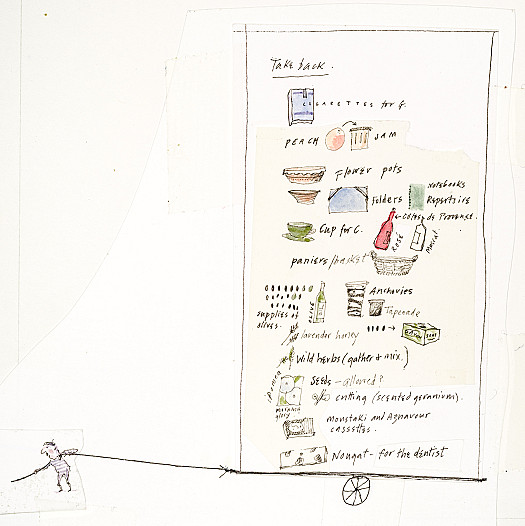 Take back.
CIGARETTES for G.
PEACH JAM
Flower pots
Folders
Notebooks
Repertoire
Cotes de Provence.
Cup for C.
ROSÉ
paniers/basket
Anchovies
Tapenade
supplies of
olives.
OLIVE
lavender honey
SOAP
Wild herbs (gather & mix.)
SEEDS - allowed?
morning
glory
cutting (scented geranium).
Moustaki and Aznavour
cassettes.
Nougat - for the dentist